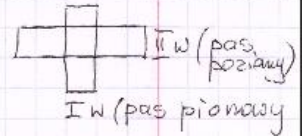 II w (pas
poziany)
I w (pas pionowy